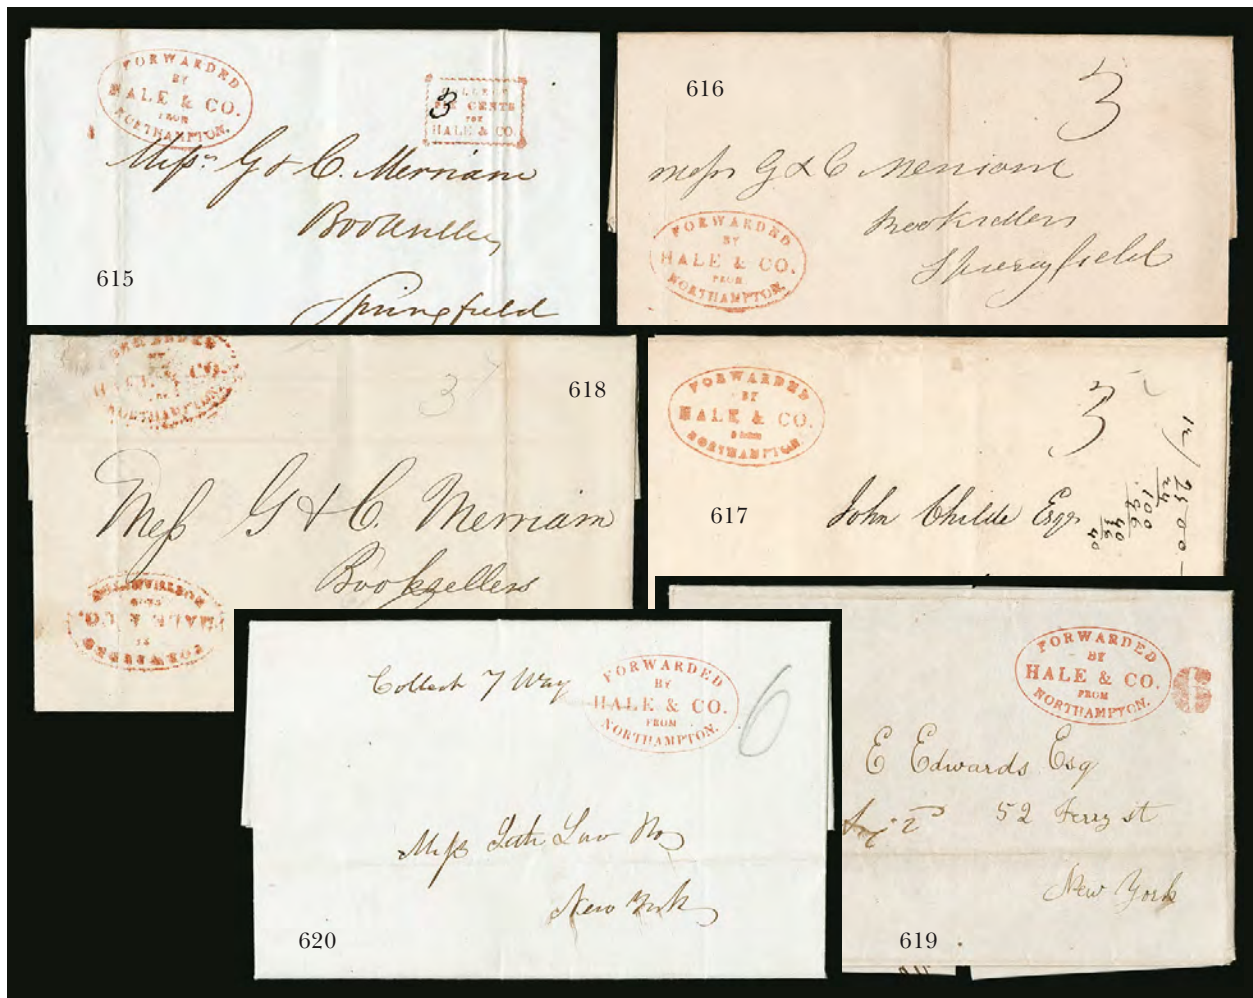 FORWARDED
BY
HALE & CO.
FROM
NORTHAMPTON.
3 CENTS
FOR
HALE & CO.
Messrs G & C. Merriam
Booksellers
Springfield
615
616
3
Mess G & C Merriam
Booksellers
Springfield
FORWARDED
BY
HALE & CO.
FROM
NORTHAMPTON.
FORWARDED
BY
HALE & CO.
FROM
NORTHAMPTON.
3
618
Mess G & C. Merriam
Booksellers
FORWARDED
BY
HALE & CO.
FROM
NORTHAMPTON
FORWARDED
BY
HALE & CO.
FROM
NORTHAMPTON.
3
617
John Childe Esqr
Collect 7 Way
FORWARDED
BY
HALE & CO.
FROM
NORTHAMPTON.
6
Mess
New York
620
FORWARDED
BY
HALE & CO.
FROM
NORTHAMPTON.
6
E Edwards Esq
52 Ferry st
New York
619